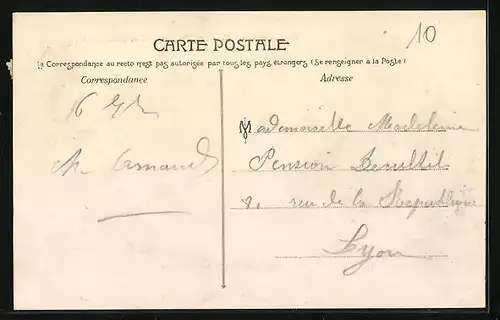 10
CARTE POSTALE
La Correspondance au recto n'est pas autorisée par tous les pays étrangers (Se renseigner à la Poste)
Correspondance
Adresse
16
Mademoiselle Madeleine
Pension
rue de la République
Lyon